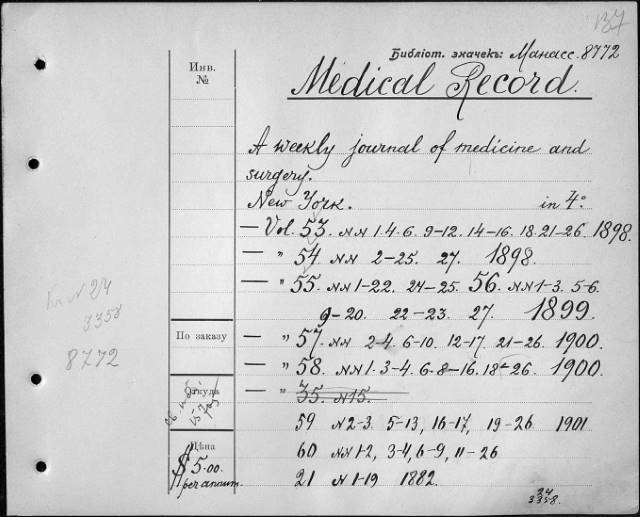 137
Библіот. значекъ: Манасс. 8772
Инв.
№
Medical Record.
A weekly journal of medicine and
surgery.
New York. in 4°.
— Vol. 53. NN 1-4. 6. 9-12. 14-16. 18. 21-26. 1898.
— " 54. NN 2-25. 27. 1898.
— " 55. NN 1-22. 24-25. 56. NN 1-3. 5-6.
9-20. 22-23. 27. 1899.
— " 57. NN 2-4. 6-10. 12-17. 21-26. 1900.
— " 58. NN 1-3-4. 6. 8-16. 18-26. 1900.
— " 35. N 15.
59 N 2-3. 5-13, 16-17, 19-26 1901
60 NN 1-2, 3-4, 6-9, 11-26
21 N 1-19 1882.
N 24
3358
8772
По заказу
Откуда
Цѣна
$5.00.
per annum.
24
3358.